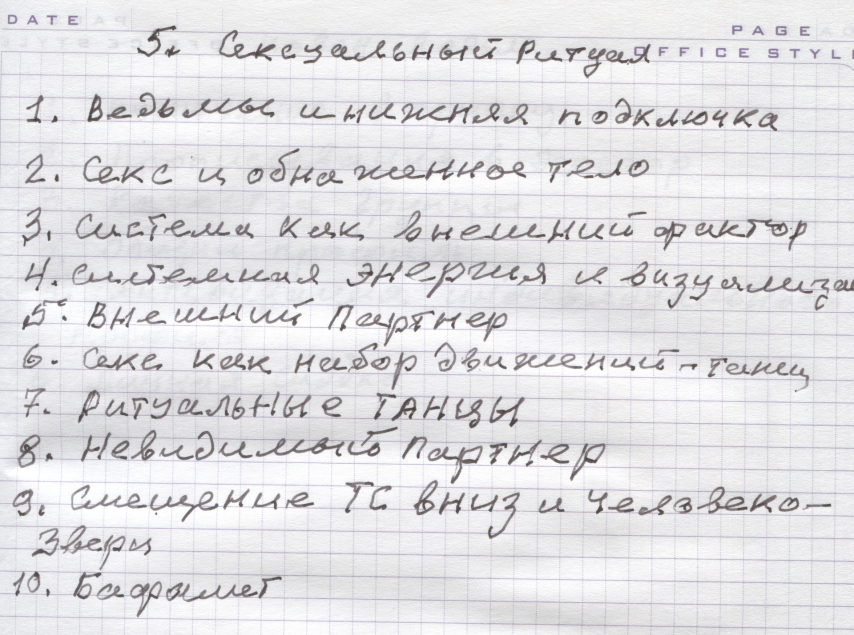 DATE
PAGE
OFFICE STYL
5. Сексуальный Ритуал
1. Ведьмы и нижняя подключка
2. Секс и обнаженное тело
3. Система как внешний фактор
4. системная энергия и визуализац
5. Внешний Партнер
6. Секс как набор движений - танец
7. Ритуальные танцы
8. Невидимый Партнер
9. Смещение ТС вниз и Человеко-
Звери
10. Бафомет